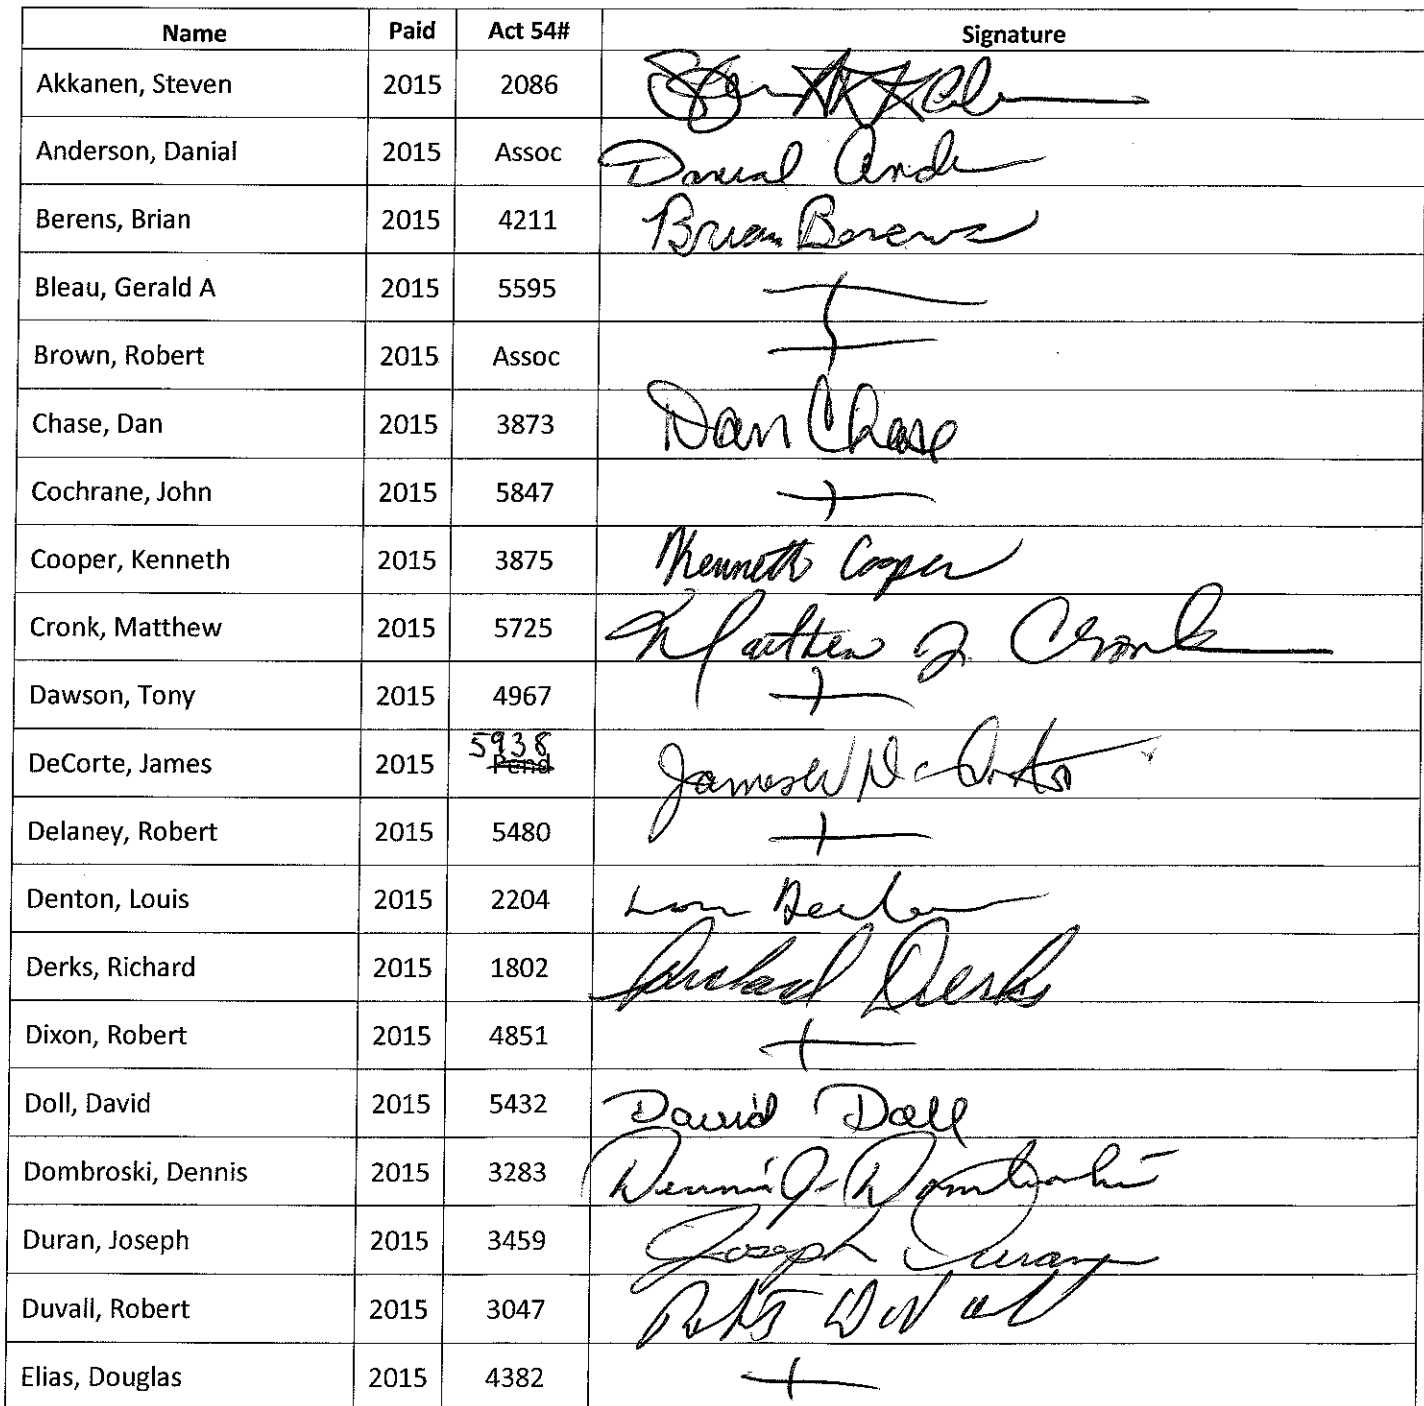 Name Paid Act 54# Signature
Akkanen, Steven 2015 2086
Anderson, Danial 2015 Assoc Danial
Berens, Brian 2015 4211 Brian Berens
Bleau, Gerald A 2015 5595
Brown, Robert 2015 Assoc
Chase, Dan 2015 3873 Dan Chase
Cochrane, John 2015 5847
Cooper, Kenneth 2015 3875 Kenneth Cooper
Cronk, Matthew 2015 5725 Matthew J. Cronk
Dawson, Tony 2015 4967
5938
DeCorte, James 2015 Pend James W
Delaney, Robert 2015 5480
Denton, Louis 2015 2204
Derks, Richard 2015 1802 Richard Derks
Dixon, Robert 2015 4851
Doll, David 2015 5432 David Doll
Dombroski, Dennis 2015 3283 Dennis J. Dombroski
Duran, Joseph 2015 3459 Joseph Duran
Duvall, Robert 2015 3047
Elias, Douglas 2015 4382